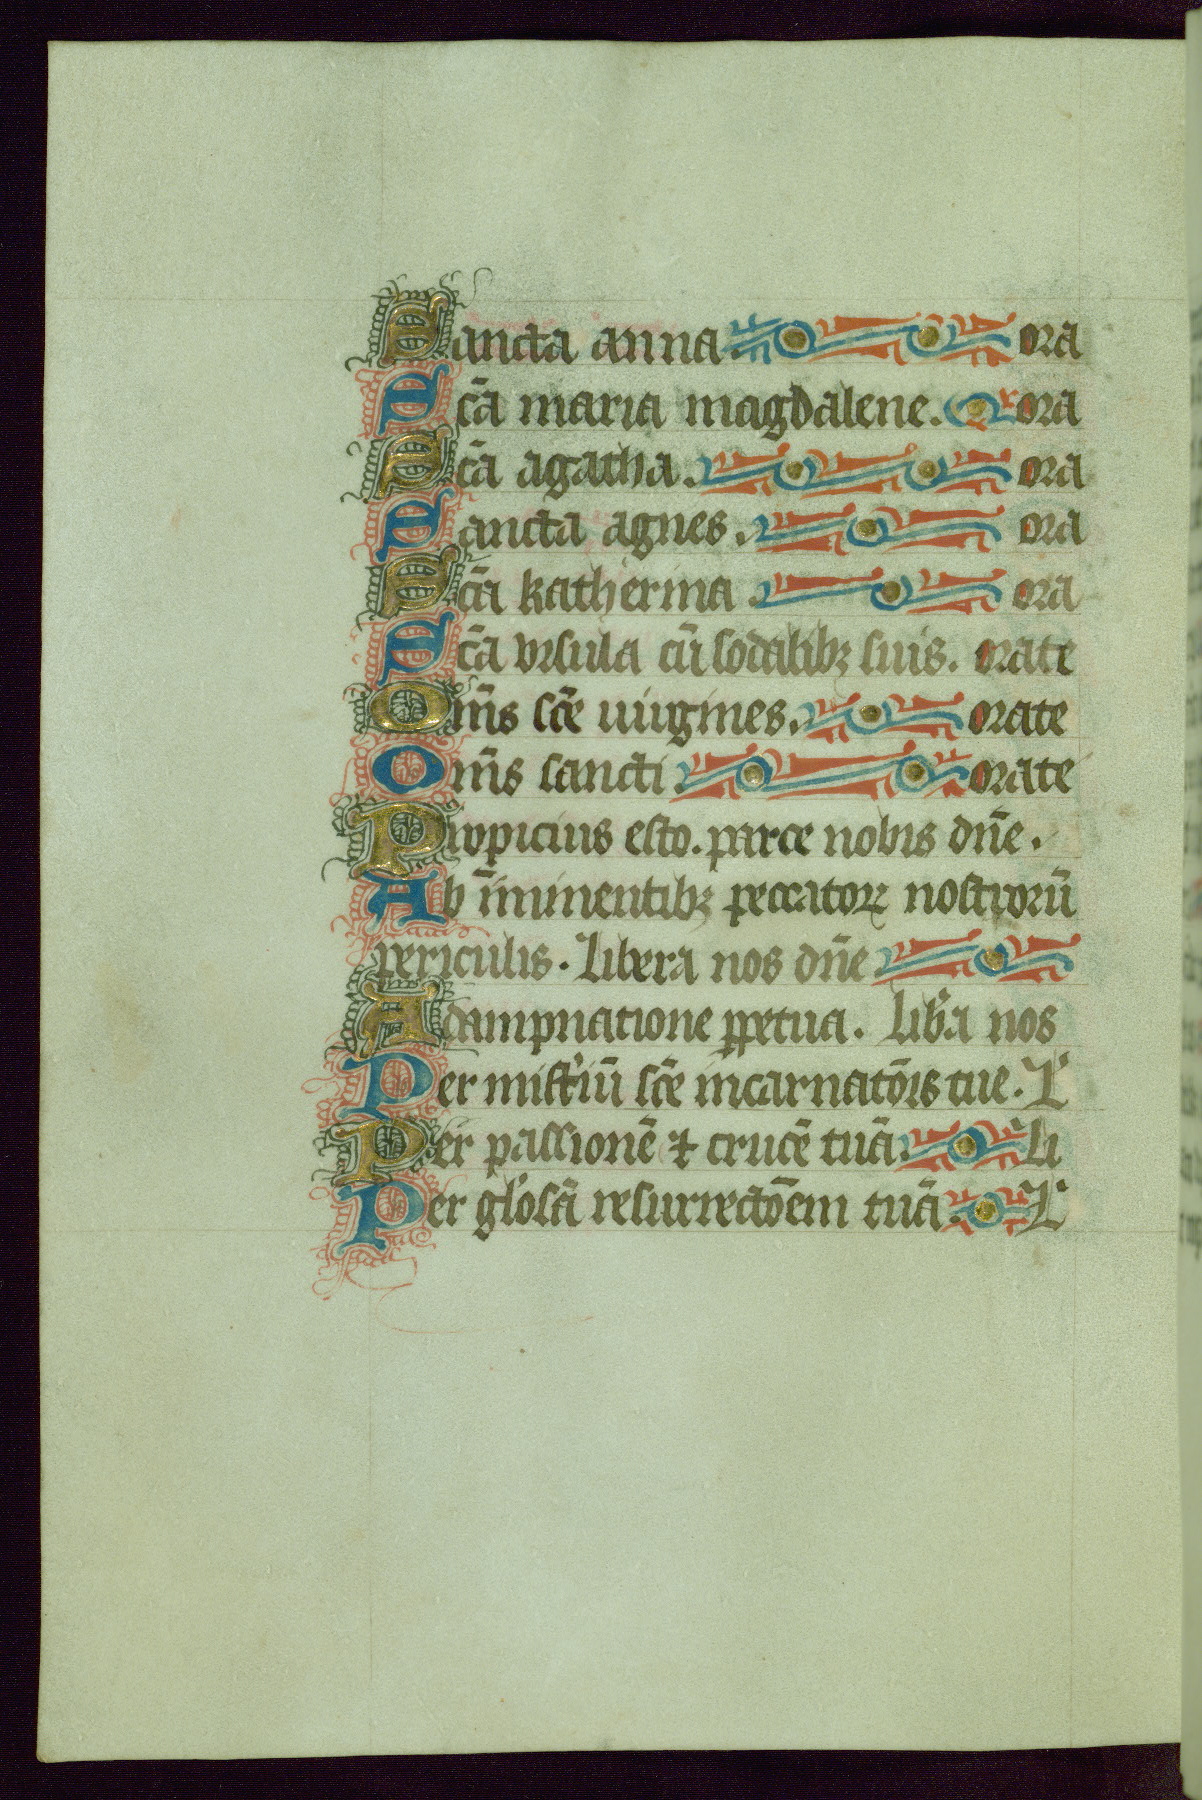 Sancta anna. ora
Scā maria magdalene. ora
Scā agatha. ora
Sancta agnes. ora
Scā katherina. ora
Scā vrsula cū sodalibꝫ suis. orate
Om̄s scē uirgines. orate
Om̄s sancti orate
Propicius esto. parce nobis dn̄e.
Ab īminentibꝫ peccatoꝝ nostrorū
periculis. Libera nos dn̄e
A dampnatione ꝑpetua. Lib̉a nos
Per mist̉iū scē incarnatōis tue. L
Per passionē ⁊ crucē tuā. Li
Per gl̉osā resurrectōem tuā. L